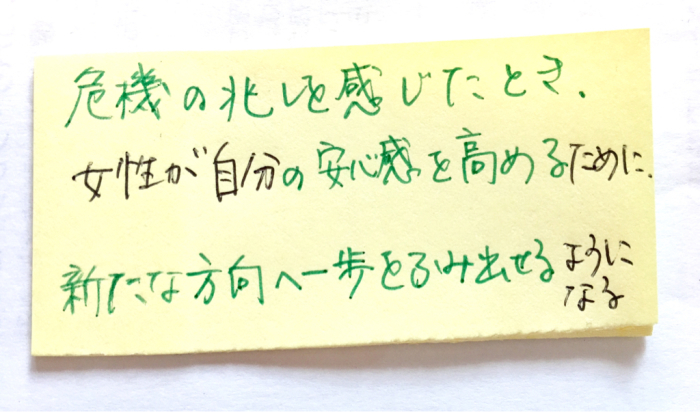 危機の兆しを感じたとき、
女性が自分の安心感を高めるために、
新たな方向へ一歩をふみ出せるように
なる